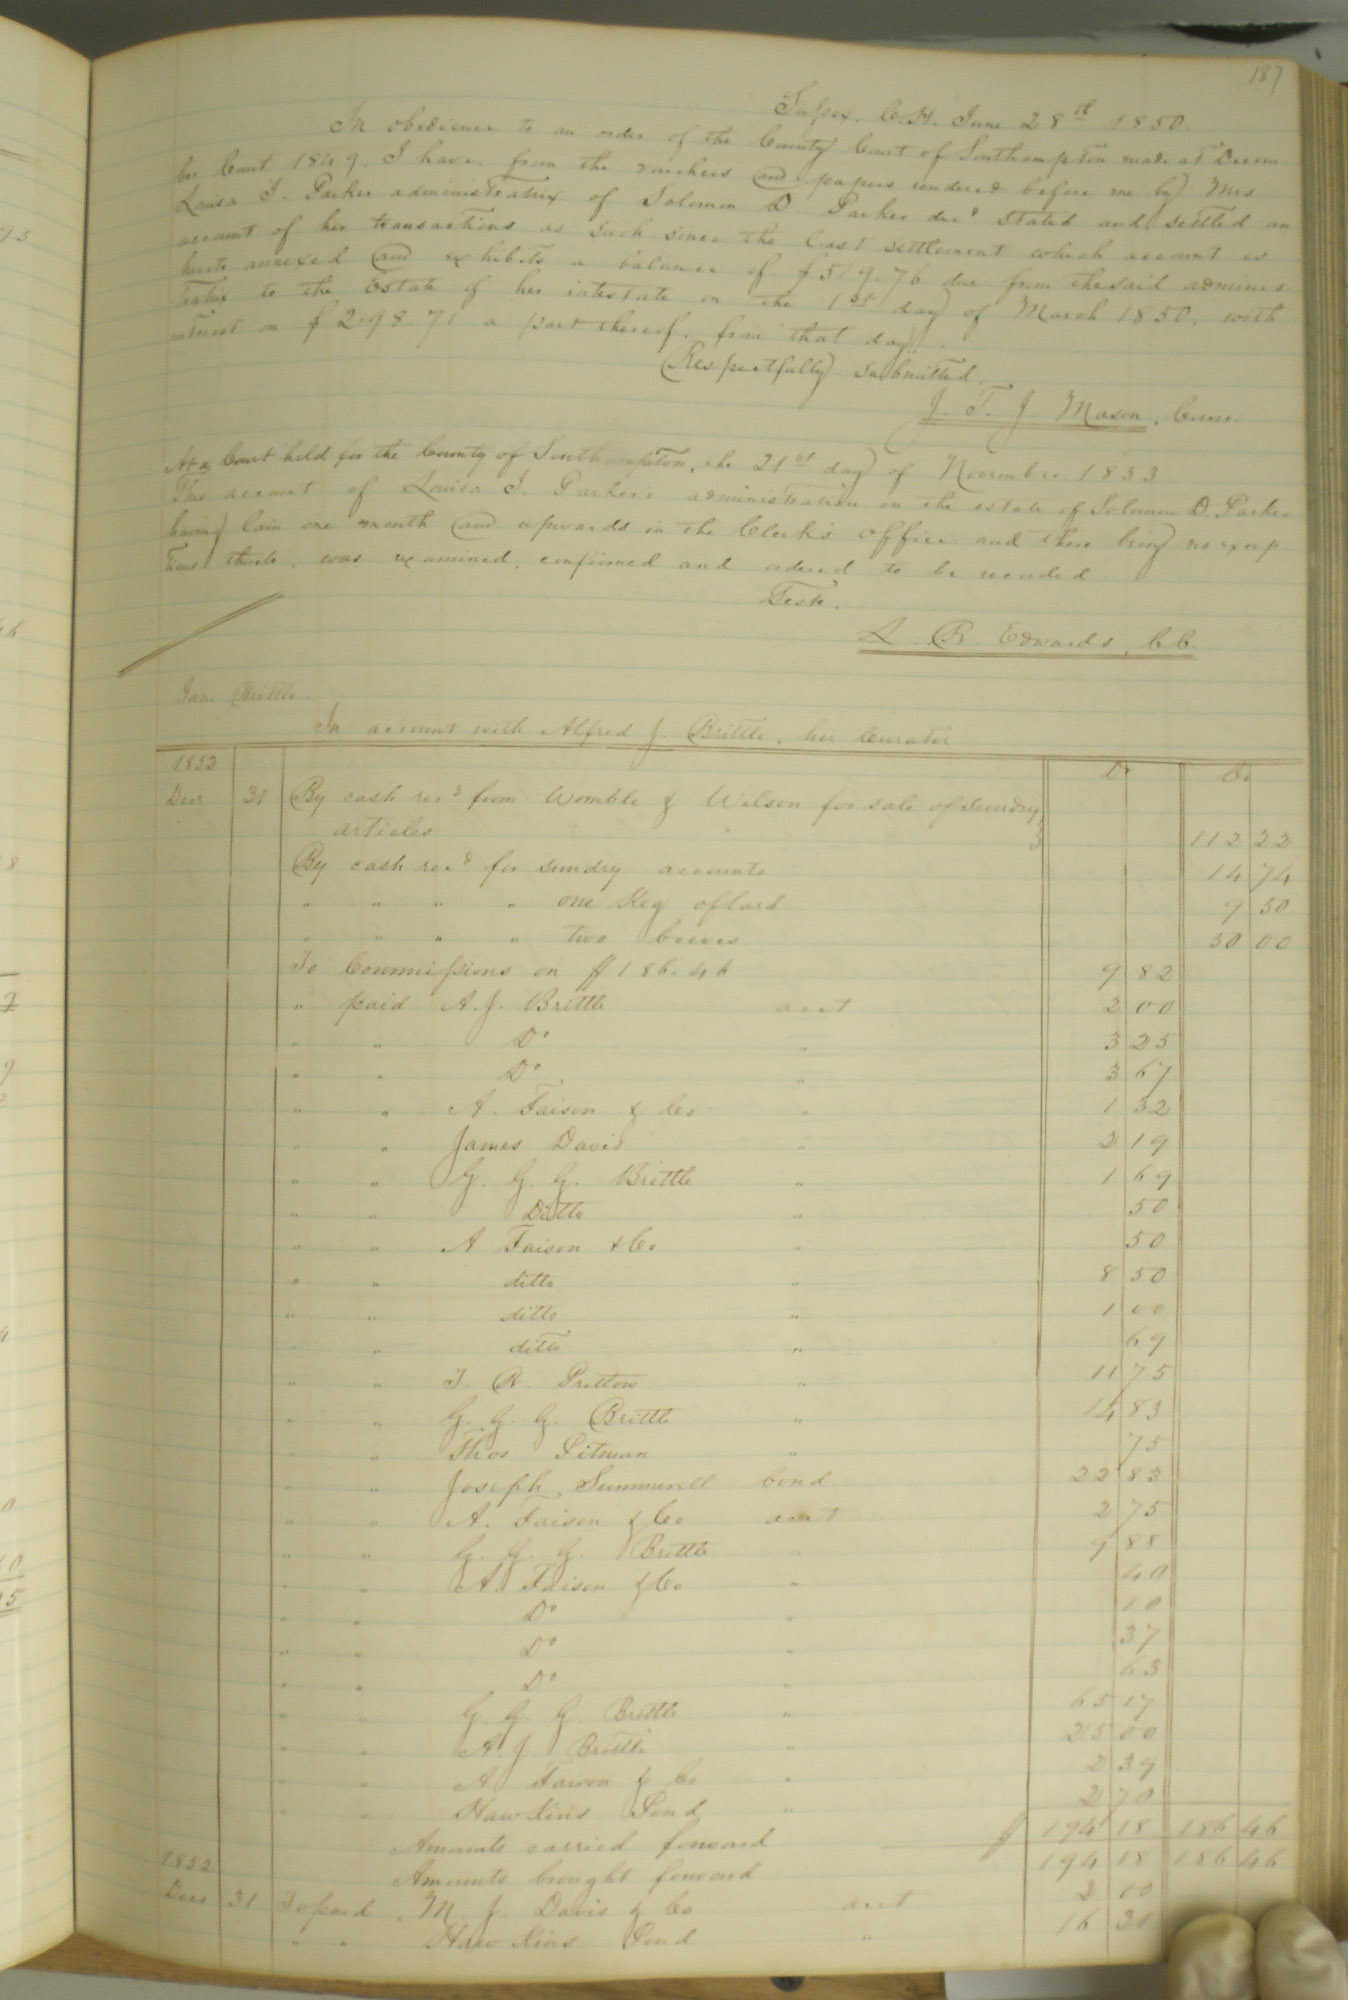 187
Sussex. C.H. June 28th 1850
In obedience to an order of the County Court of Southampton made at Decem
ber Court 1849. I have from the vouchers and papers rendered before me by Mrs
Louisa J. Parker administratrix of Solomon D. Parker decd stated and settled an
account of her transactions as such since the last settlement which account is
hereto annexed and exhibits a balance of $519.76 due from the said adminis
tratrix to the Estate of her intestate on the 1st day of March 1850, with
interest on $298.71 a part thereof, from that day.
Respectfully submitted,
J. T. J. Mason, Comr.
At a Court held for the County of Southampton, the 21st day of November 1853
This account of Louisa J. Parker's administration on the estate of Solomon D. Parker
having lain one month and upwards in the Clerk's Office and there being no excep
tions thereto, was examined, confirmed and ordered to be recorded
Teste.
L. R. Edwards, C.C.
Jane Brittle
In account with Alfred J. Brittle, her Curator
1852 Dr Cr
Decr 31 By cash recd from Womble & Wilson for sale of sundry
articles 112 22
By cash recd for sundry accounts 14 74
" " " " one Keg of lard 9 50
" " " " two beeves 50 00
To Commissions on $186.46 9 82
" paid A. J. Brittle acct 2 00
" " Do " 3 25
" " Do " 3 67
" " A. Faison & Co " 1 32
" " James Davis " 2 19
" " G. G. G. Brittle " 1 69
" " Ditto " 50
" " A Faison & Co " 50
" " ditto " 8 50
" " ditto " 1 00
" " ditto " 69
" " J. R. Britton " 11 75
" " G. G. G. Brittle " 14 83
" " Thos Pitman " 75
" " Joseph Summerell bond 22 83
" " A. Faison & Co acct 2 75
" " G. G. G. Brittle " 9 88
" " A. Faison & Co " 40
" " Do " 10
" " Do " 37
" " Do " 63
" " G. G. G. Brittle " 65 17
" " A. J. Brittle " 25 00
" " A Faison & Co " 2 39
" " Hawkins Pond " 2 70
Amounts carried forward $ 194 18 186 46
1852 Amounts brought forward 194 18 186 46
Decr 31 To paid M. J. Davis & Co acct 2 10
" " Hawkins Pond " 16 31